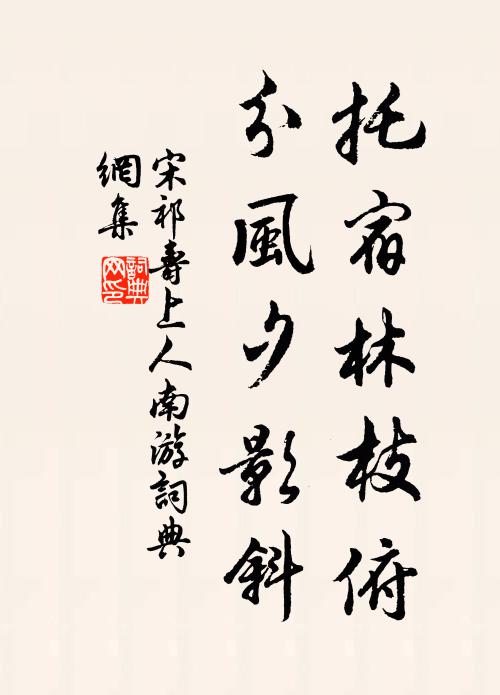 托宿林枝俯
分風夕影斜
宋祁壽上人南游詞典
網集
詞典
网印